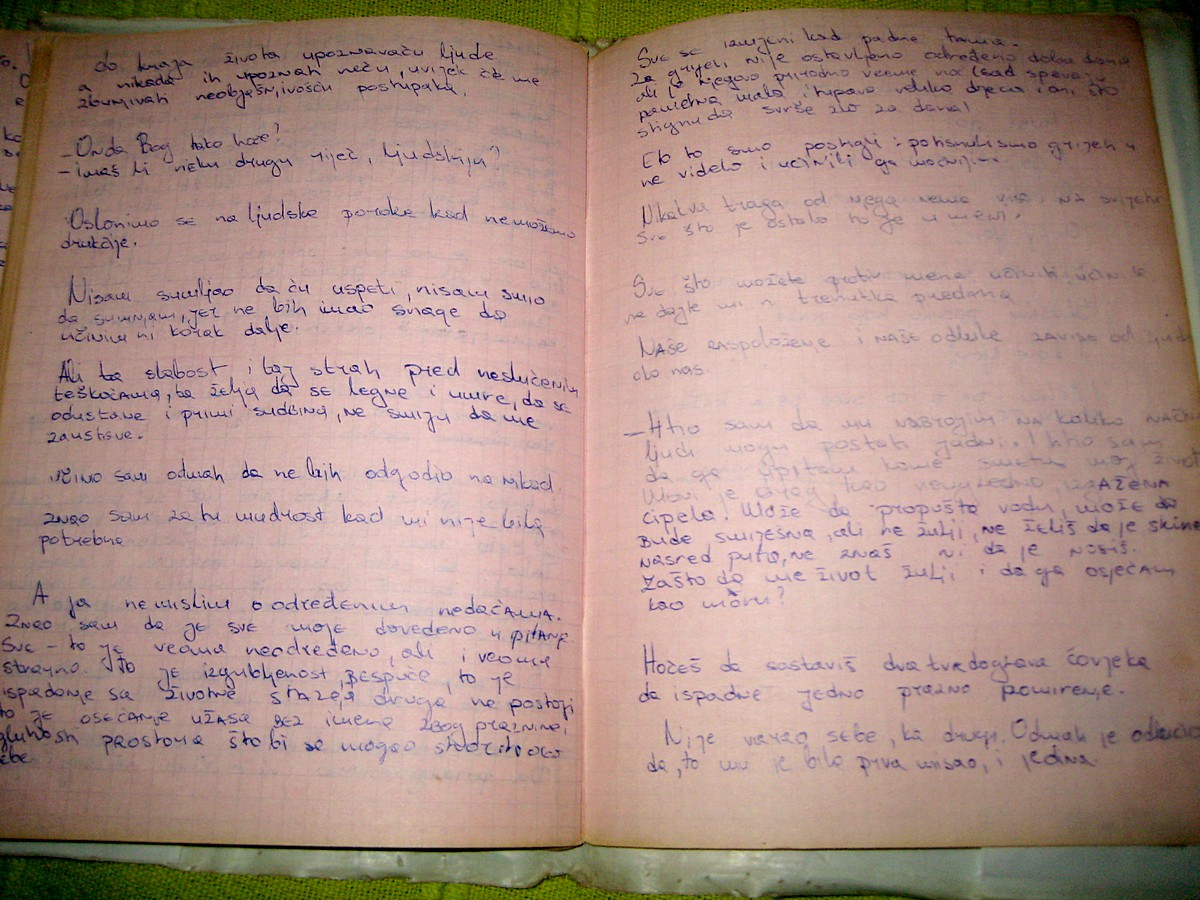 do kraja života upoznavaću ljude
a nikada ih upoznati neću, uvijek će me
zbunjivati neobjašnjivošću postupaka.
- Onda Bog tako hoće?
- imaš li neku drugu riječ, ljudskiju?
Oslonimo se na ljudske poroke kad nemožemo
drukčije.
Nisam sumnjao da ću uspeti, nisam smio
da sumnjam, jer ne bih imao snage da
učinim ni korak dalje.
Ali ta slabost i taj strah pred neslućenim
teškoćama, ta želja da se legne i umre, da se
odustane i primi sudbina, ne smiju da me
zaustave.
učino sam odmah da ne bih odgodio na nikad.
znao sam za tu mudrost kad mi nije bila
potrebna
A ja nemislim o određenim nedaćama.
Znao sam da je sve moje dovedeno u pitanje
Sve - to je veoma neodređeno, ali i veoma
strašno. To je izgubljenost, BESPUĆE, to je
ispadanje sa životne staze, a druga ne postoji
to je osećanje užasa BEZ imena zbog praznine,
gluhosti prostora što bi se mogao stvoriti oko
sebe
Sve se izmijeni kad padne tama.
Za grijeh nije ostavljeno određeno doba dana
ali je njegovo prirodno vreme noć (sad spavaju
pametna mala i tupava velika djeca i oni što
stignu da svrše zlo za dana)
Eto to smo postigli: potisnuli smo grijeh u
ne videlo i učinili ga moćnijim
Nikakva traga od njega nema više na svijetu
Sve što je ostalo to je u meni.
Sve što možete protiv mene učiniti učinite
ne dajte mi n trenutka predaha
NAŠE raspoloženje i NAŠE odluke zavise od ljudi
oko nas.
- Htio sam da mu NABROJIM NA koliko NAČINA
ljudi mogu postati jadni. I htio sam
da ga upitam kome smeta moj život
Meni je drag, kao neugledno, izgAŽENA
cipela. Može da propušta vodu, može da
bude smiješna, ali ne žulji, ne želiš da je skineš
nasred puta, ne znaš ni da je nosiš.
Zašto da me život žulji i da ga osjećam
kao móru?
Hoćeš da sastaviš dva tvrdoglava čovjeka
da ispadne jedno prazno pomirenje.
Nije varao sebe, ko drugi. Odmah je odlučio
da, to mu je bila prva misao, i jedina.